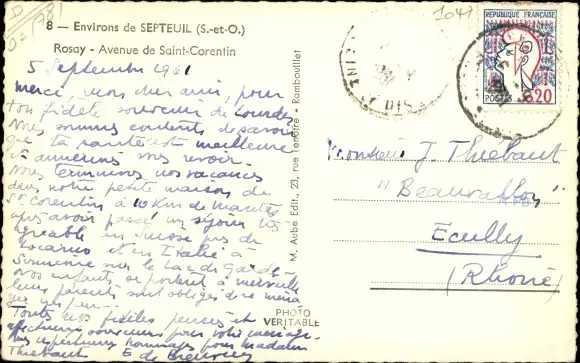 8 — Environs de SEPTEUIL (S.-et-O.)
Rosay - Avenue de Saint-Corentin
5 Septembre 1961
Merci, mon cher ami, pour
ton fidèle souvenir de Lourdes.
Nous sommes contents de savoir
que ta santé est meilleure
et aimerions vous revoir.
Nous terminons nos vacances
dans notre petite maison de
St Corentin à 10 Km de Mantes
après avoir passé un séjour très
agréable en Suisse près de
Locarno et en Italie à
Sirmione sur le Lac de Garde.
Nos enfants se portent à merveille
leurs parents sont obligés de
un peu.
Toutes nos fidèles pensées et
affectueux souvenirs pour votre
Mes respectueux hommages pour Madame
Thiébaut E de
M. Aubé Edit., 23, rue Lenôtre - Rambouillet
PHOTO
VERITABLE
1041
REPUBLIQUE FRANÇAISE
POSTES 0.20
Monsieur J Thiébaut
"Beauvallon"
Ecully
(Rhône)